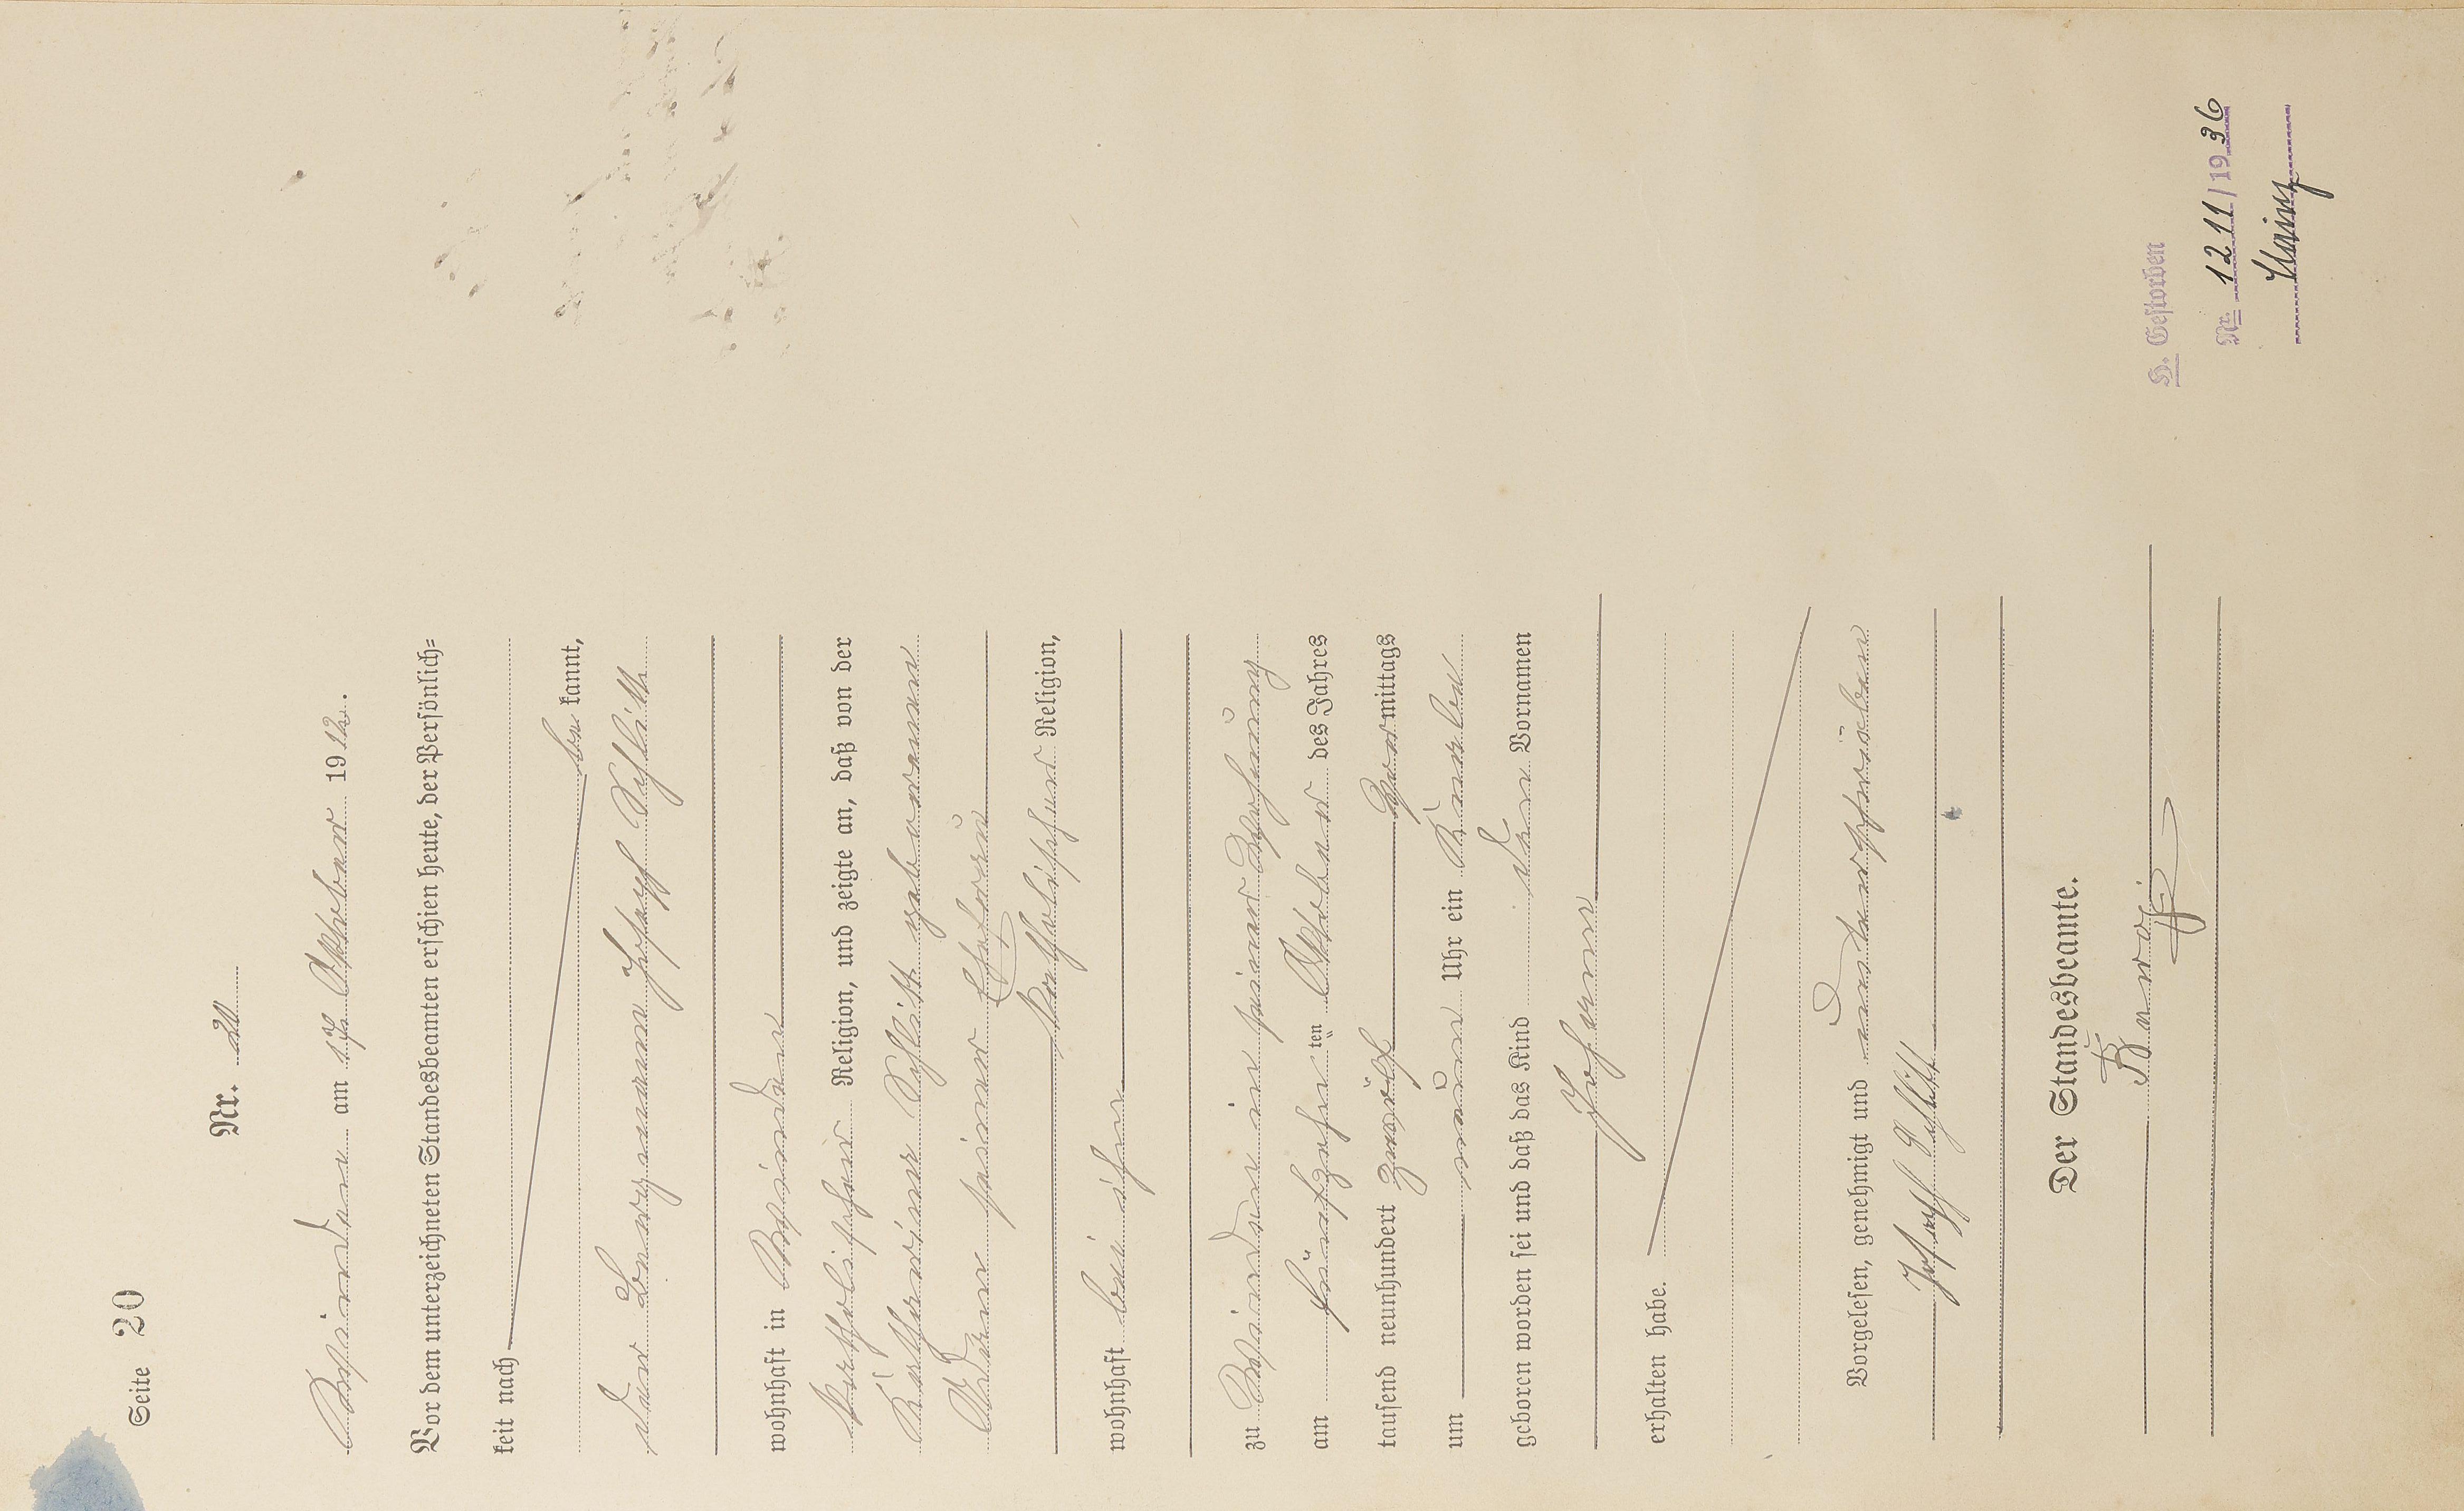 Seite 20
Nr. 20
am 17. Oktober 1912.
Vor dem unterzeichneten Standesbeamten erschien heute, der Persönlich=
keit nach
be kannt,
der Bergmann Joseph Schlitt
wohnhaft in
katholischer Religion, und zeigte an, daß von der
Katharina Schlitt geborenen
seiner Ehefrau
katholischer Religion,
wohnhaft bei ihm
zu in seiner Wohnung
am fünfzehn ten Oktober des Jahres
tausend neunhundert zwölf Vormittags
um neun Uhr ein Knabe
geboren worden sei und daß das Kind den Vornamen
Johann
erhalten habe.
Vorgelesen, genehmigt und unterschrieben
Joseph Schlitt
Der Standesbeamte.
H. Gestorben
Nr. 1211/1936